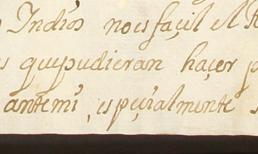 Indios no es façil el
quepudieran haçer p
antemi, espeçialmente s